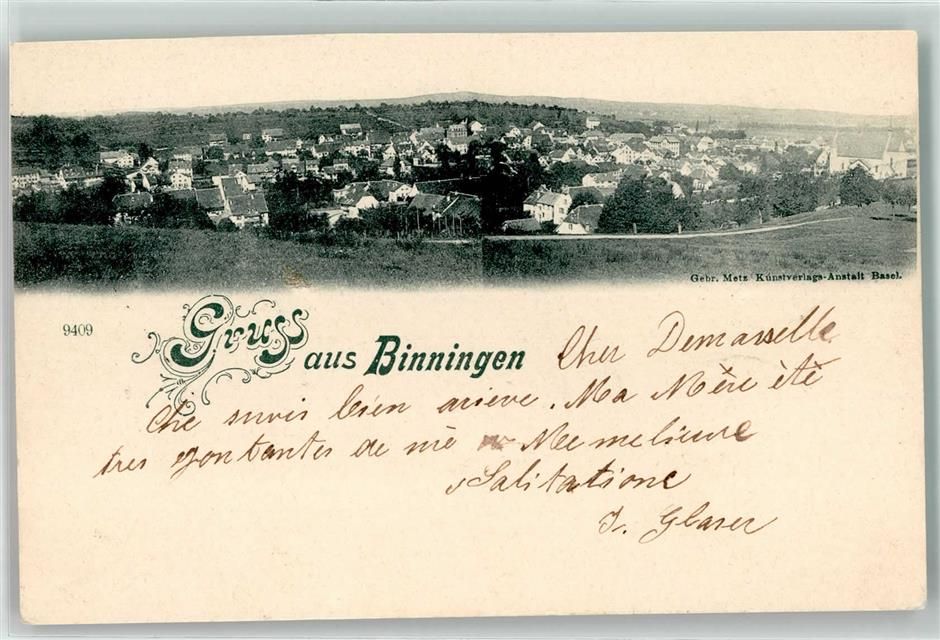 Gebr. Metz Kunstverlags-Anstalt Basel.
9409
Gruss aus Binningen
Cher Demaselle
Che suvis bien arieve. Ma Mère été
tres gontantes de mè Mee melieure
Salitatione
J. Glaser